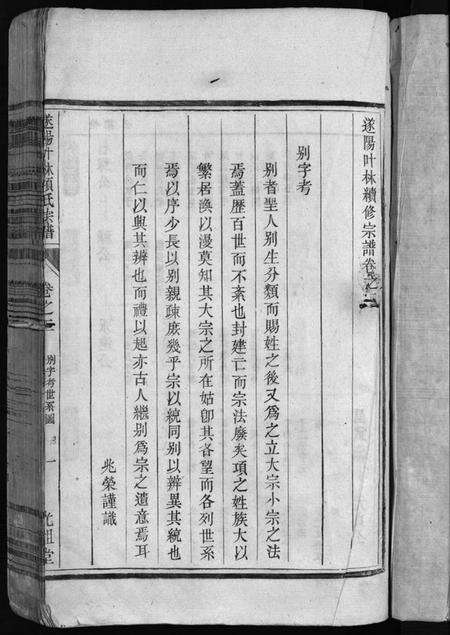 遂陽叶林續修宗譜卷之二
别字考
别者聖人别生分類而賜姓之後又爲之立大宗小宗之法
焉蓋歷百世而不紊也封建亡而宗法廢矣項之姓族大以
繁居渙以漫莫知其大宗之所在姑卽其各望而各列世系
焉以序少長以别親疎庻幾乎宗以統同别以辨異其統也
而仁以興其辨也而禮以起亦古人繼别爲宗之遺意焉耳
兆榮謹識
遂陽叶林項氏宗譜
卷之二
别字考世系圖
一
光祖堂